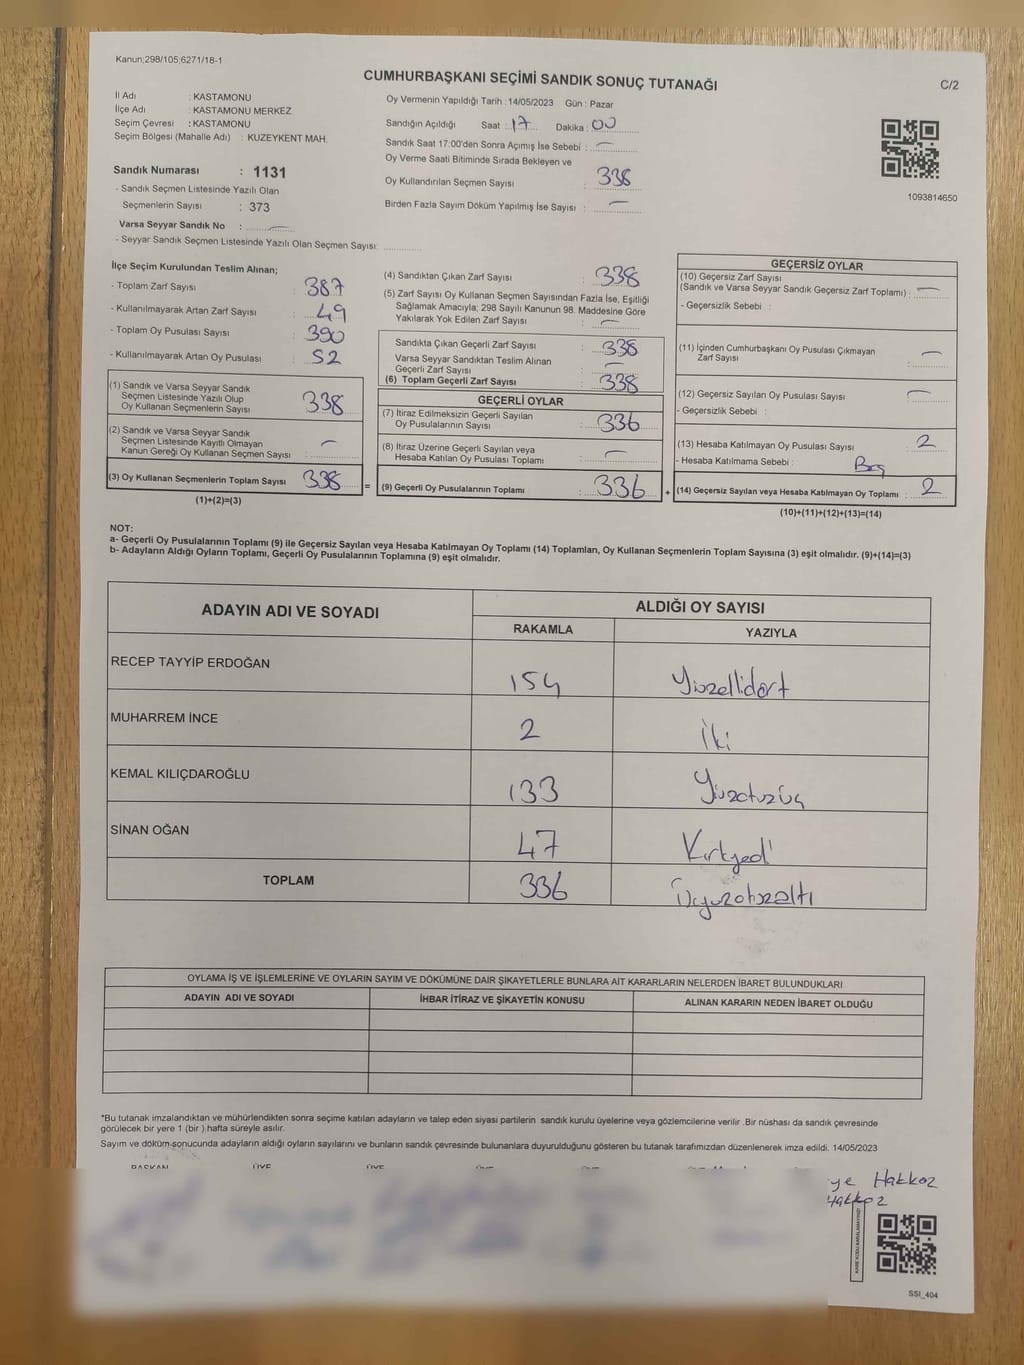 Kanun;298/105;6271/18-1
CUMHURBAŞKANI SEÇİMİ SANDIK SONUÇ TUTANAĞI
C/2
İl Adı : KASTAMONU
İlçe Adı : KASTAMONU MERKEZ
Seçim Çevresi : KASTAMONU
Seçim Bölgesi (Mahalle Adı) : KUZEYKENT MAH.
Oy Vermenin Yapıldığı Tarih : 14/05/2023 Gün : Pazar
Sandığın Açıldığı Saat : 17 Dakika : 00
Sandık Saat 17:00'den Sonra Açımış İse Sebebi : —
Oy Verme Saati Bitiminde Sırada Bekleyen ve
Oy Kullandırılan Seçmen Sayısı : 338
Birden Fazla Sayım Döküm Yapılmış İse Sayısı : —
1093814650
Sandık Numarası : 1131
- Sandık Seçmen Listesinde Yazılı Olan
Seçmenlerin Sayısı : 373
Varsa Seyyar Sandık No : —
- Seyyar Sandık Seçmen Listesinde Yazılı Olan Seçmen Sayısı:
İlçe Seçim Kurulundan Teslim Alınan;
- Toplam Zarf Sayısı : 387
- Kullanılmayarak Artan Zarf Sayısı : 49
- Toplam Oy Pusulası Sayısı : 390
- Kullanılmayarak Artan Oy Pusulası : 52
(1) Sandık ve Varsa Seyyar Sandık
Seçmen Listesinde Yazılı Olup
Oy Kullanan Seçmenlerin Sayısı : 338
(2) Sandık ve Varsa Seyyar Sandık
Seçmen Listesinde Kayıtlı Olmayan
Kanun Gereği Oy Kullanan Seçmen Sayısı : —
(3) Oy Kullanan Seçmenlerin Toplam Sayısı : 338
(1)+(2)=(3)
(4) Sandıktan Çıkan Zarf Sayısı : 338
(5) Zarf Sayısı Oy Kullanan Seçmen Sayısından Fazla İse, Eşitliği
Sağlamak Amacıyla; 298 Sayılı Kanunun 98. Maddesine Göre
Yakılarak Yok Edilen Zarf Sayısı : —
Sandıkta Çıkan Geçerli Zarf Sayısı : 338
Varsa Seyyar Sandıktan Teslim Alınan
Geçerli Zarf Sayısı : —
(6) Toplam Geçerli Zarf Sayısı : 338
GEÇERLİ OYLAR
(7) İtiraz Edilmeksizin Geçerli Sayılan
Oy Pusulalarının Sayısı : 336
(8) İtiraz Üzerine Geçerli Sayılan veya
Hesaba Katılan Oy Pusulası Toplamı : —
= (9) Geçerli Oy Pusulalarının Toplamı : 336
GEÇERSİZ OYLAR
(10) Geçersiz Zarf Sayısı
(Sandık ve Varsa Seyyar Sandık Geçersiz Zarf Toplamı) : —
- Geçersizlik Sebebi :
(11) İçinden Cumhurbaşkanı Oy Pusulası Çıkmayan
Zarf Sayısı : —
(12) Geçersiz Sayılan Oy Pusulası Sayısı : —
- Geçersizlik Sebebi :
(13) Hesaba Katılmayan Oy Pusulası Sayısı : 2
- Hesaba Katılmama Sebebi : Boş
+ (14) Geçersiz Sayılan veya Hesaba Katılmayan Oy Toplamı : 2
(10)+(11)+(12)+(13)=(14)
NOT:
a- Geçerli Oy Pusulalarının Toplamı (9) ile Geçersiz Sayılan veya Hesaba Katılmayan Oy Toplamı (14) Toplamları, Oy Kullanan Seçmenlerin Toplam Sayısına (3) eşit olmalıdır. (9)+(14)=(3)
b- Adayların Aldığı Oyların Toplamı, Geçerli Oy Pusulalarının Toplamına (9) eşit olmalıdır.
ADAYIN ADI VE SOYADI
ALDIĞI OY SAYISI
RAKAMLA YAZIYLA
RECEP TAYYİP ERDOĞAN 154 Yüzellidört
MUHARREM İNCE 2 İki
KEMAL KILIÇDAROĞLU 133 Yüzotuzüç
SİNAN OĞAN 47 Kırkyedi
TOPLAM 336 Üçyüzotuzaltı
OYLAMA İŞ VE İŞLEMLERİNE VE OYLARIN SAYIM VE DÖKÜMÜNE DAİR ŞİKAYETLERLE BUNLARA AİT KARARLARIN NELERDEN İBARET BULUNDUKLARI
ADAYIN ADI VE SOYADI İHBAR İTİRAZ VE ŞİKAYETİN KONUSU ALINAN KARARIN NEDEN İBARET OLDUĞU
*Bu tutanak imzalandıktan ve mühürlendikten sonra seçime katılan adayların ve talep eden siyasi partilerin sandık kurulu üyelerine veya gözlemcilerine verilir .Bir nüshası da sandık çevresinde
görülecek bir yere 1 (bir ) hafta süreyle asılır.
Sayım ve döküm sonucunda adayların aldığı oyların sayılarını ve bunların sandık çevresinde bulunanlara duyurulduğunu gösteren bu tutanak tarafımızdan düzenlenerek imza edildi. 14/05/2023
BAŞKAN ÜYE ÜYE
ye Hakkoz
Hakkoz
SSI_404